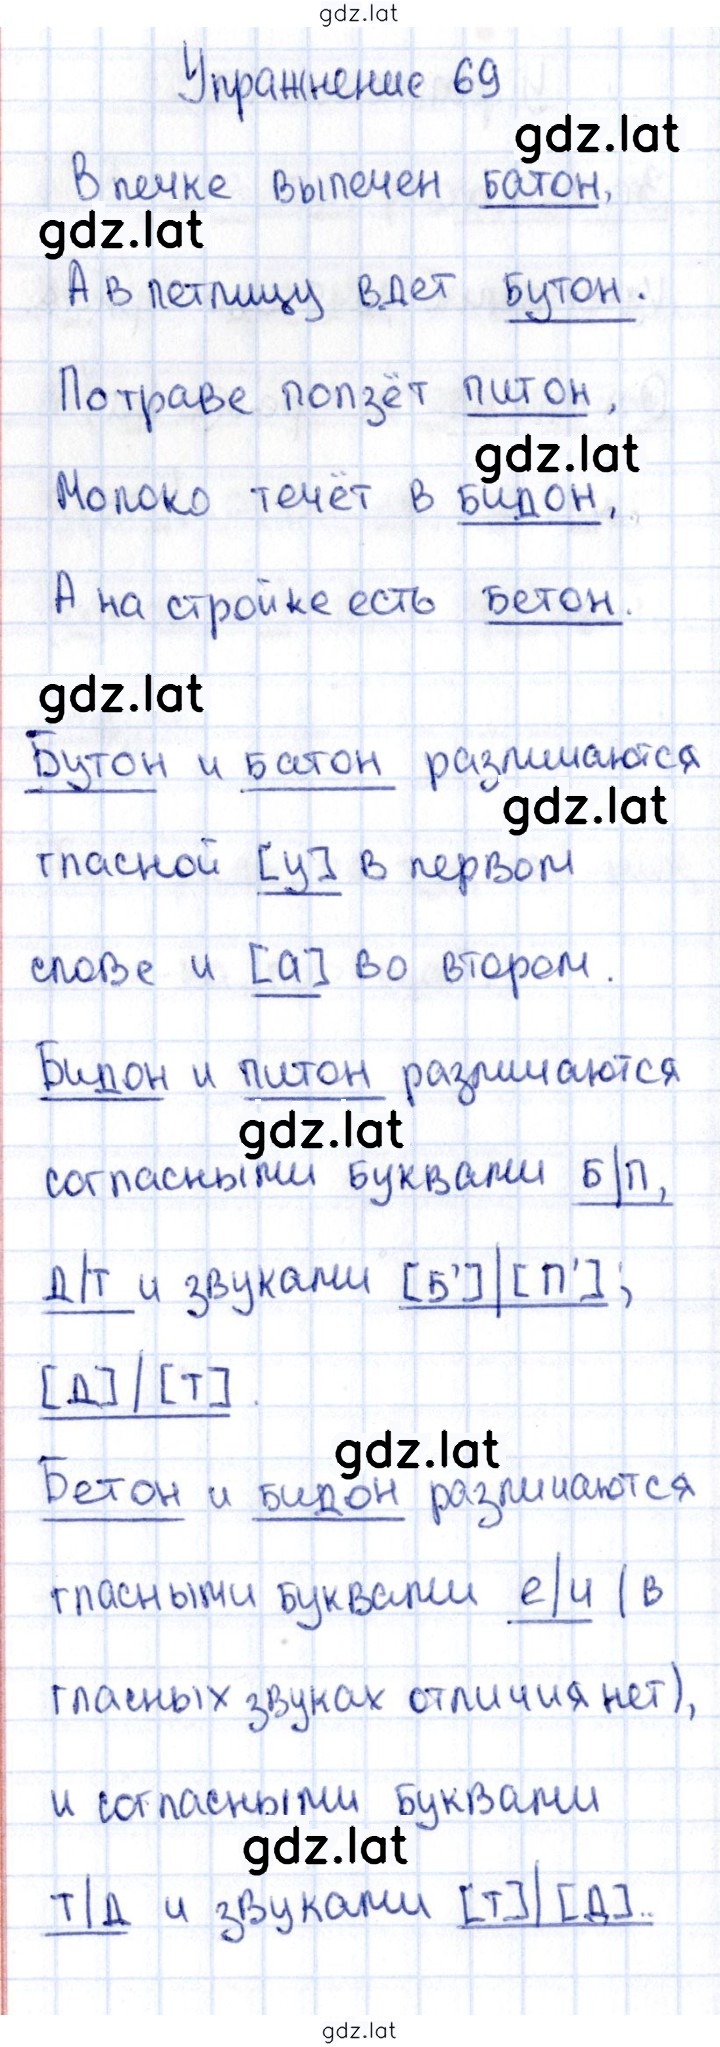 gdz.lat
Упражнение 69
gdz.lat
В печке выпечен батон,
gdz.lat
А в петлицу вдет бутон.
По траве ползёт питон,
gdz.lat
Молоко течёт в бидон,
А на стройке есть бетон.
gdz.lat
Бутон и батон различаются
gdz.lat
гласной [у] в первом
слове и [а] во втором.
Бидон и питон различаются
gdz.lat
согласными буквами Б|П,
Д/Т и звуками [Б']|[П'];
[Д]/[Т].
gdz.lat
Бетон и бидон различаются
гласными буквами е|и (в
гласных звуках отличия нет),
и согласными буквами
gdz.lat
т|д и звуками [Т]|[Д]..
gdz.lat